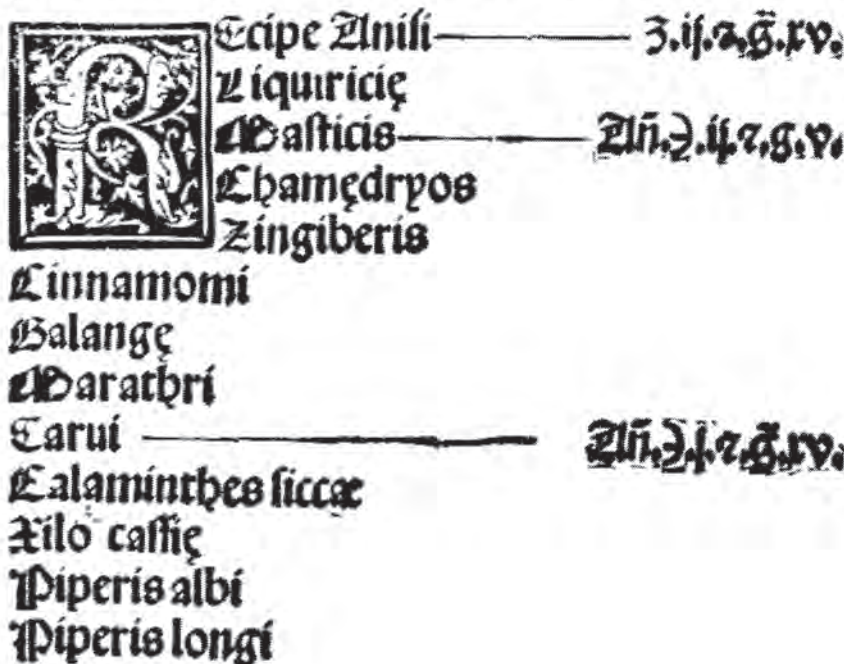 REcipe Anisi ʒ.ij.⁊.g̃.xv.
Liquiricię
Masticis Añ.℈.ij.⁊.g.v.
Chamędryos
Zingiberis
Cinnamomi
Galangę
Marathri
Carui Añ.℈.j.⁊.g̃.xv.
Calaminthes siccæ
Xilo cassię
Piperis albi
Piperis longi